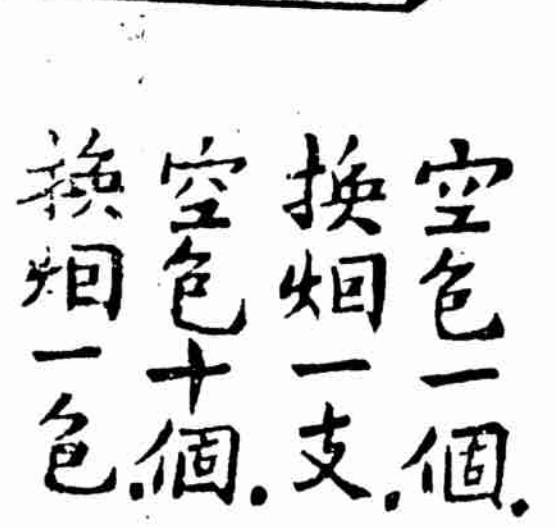 空包一個.
换烟一支.
空包十個.
换烟一包.